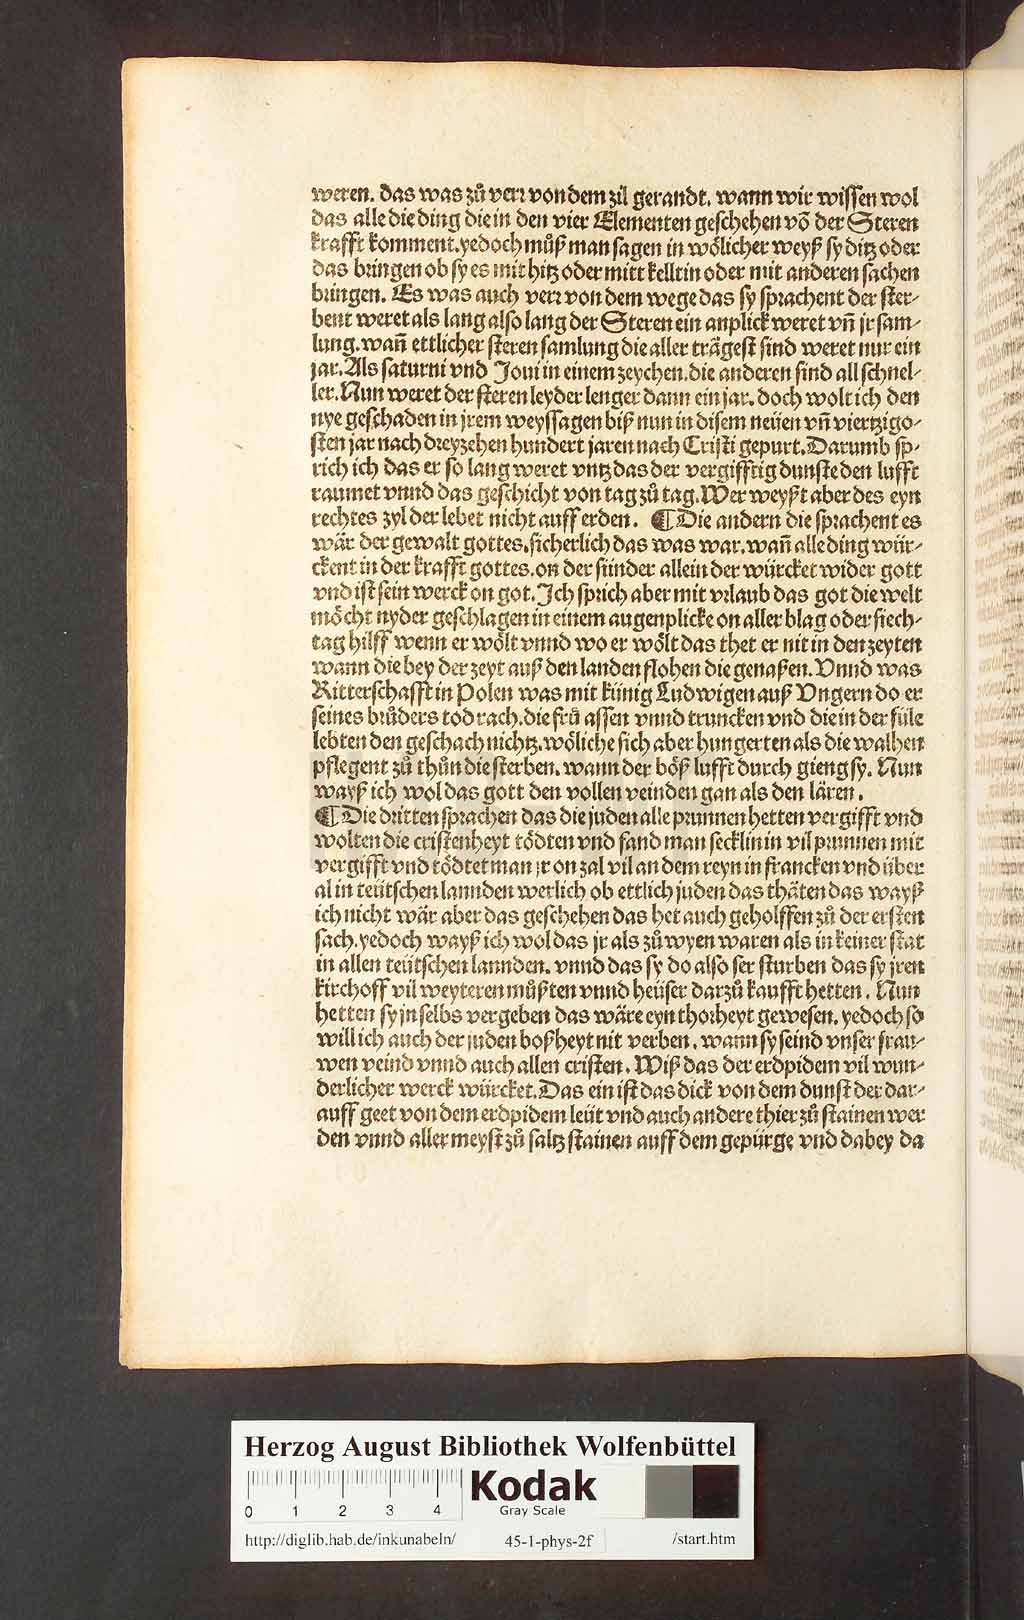 weren. das was zů verr von dem zil gerandt. wann wir wissen wol
das alle die ding die in den vier Elementen geschehen võ der Steren
krafft komment. yedoch můß man sagen in wölicher weyß sy ditz oder
das bringen ob sy es mit hitz oder mitt kelltin oder mit anderen sachen
bringen. Es was auch verr von dem wege das sy sprachent der ster-
bent weret als lang also lang der Steren ein anplick weret vñ jr sam-
lung. wañ ettlicher steren samlung die aller trägest sind weret nur ein
jar. Als saturni vnd Joui in einem zeychen. die anderen sind all schnel-
ler. Nun weret der steren leyder lenger dann ein jar. doch wolt ich den
nye geschaden in jrem weyssagen biß nun in disem neüen vñ viertzigo-
sten jar nach dreyzehen hundert jaren nach Cristi gepurt. Darumb sp-
rich ich das er so lang weret vntz das der vergifftig dunste den lufft
raumet vnnd das geschicht von tag zů tag. Wer weyßt aber des eyn
rechtes zyl der lebet nicht auff erden. ¶ Die andern die sprachent es
wär der gewalt gottes. sicherlich das was war. wañ alle ding wür-
ckent in der krafft gottes. on der sünder allein der würcket wider gott
vnd ist sein werck on got. Ich sprich aber mit vrlaub das got die welt
möcht nyder geschlagen in einem augenplicke on aller blag oder siech-
tag hilff wenn er wölt vnnd wo er wölt das thet er nit in den zeyten
wann die bey der zeyt auß den landen flohen die genaßen. Vnnd was
Ritterschafft in Polen was mit künig Ludwigen auß Vngern do er
seines brůders tod rach. die frů assen vnnd truncken vnd die in der füle
lebten den geschach nichtz. wöliche sich aber hungerten als die walhen
pflegent zů thůn die sterben. wann der böß lufft durch gieng sy. Nun
wayß ich wol das gott den vollen veinden gan als den lären.
¶ Die dritten sprachen das die juden alle prunnen hetten vergifft vnd
wolten die cristenheyt tödten vnd fand man secklin in vil prunnen mit
vergifft vnd tödtet man jr on zal vil an dem reyn in francken vnd über
al in teütschen lannden werlich ob ettlich juden das thäten das wayß
ich nicht wär aber das geschehen das het auch geholffen zů der ersten
sach. yedoch wayß ich wol das jr als zů wyen waren als in keiner stat
in allen teütschen lannden. vnnd das sy do also ser sturben das sy jren
kirchoff vil weyteren můßten vnnd heüser darzů kaufft hetten. Nun
hetten sy jn selbs vergeben das wäre eyn thorheyt gewesen. yedoch so
will ich auch der juden boßheyt nit verben. wann sy seind vnser frau-
wen veind vnnd auch allen cristen. Wiß das der erdpidem vil wun-
derlicher werck würcket. Das ein ist das dick von dem dunst der dar-
auff geet von dem erdpidem leüt vnd auch andere thier zů stainen wer
den vnnd aller meyst zů saltz stainen auff dem gepürge vnd dabey da
Herzog August Bibliothek Wolfenbüttel
0 1 2 3 4
Kodak
Gray Scale
http://diglib.hab.de/inkunabeln/ 45-1-phys-2f /start.htm